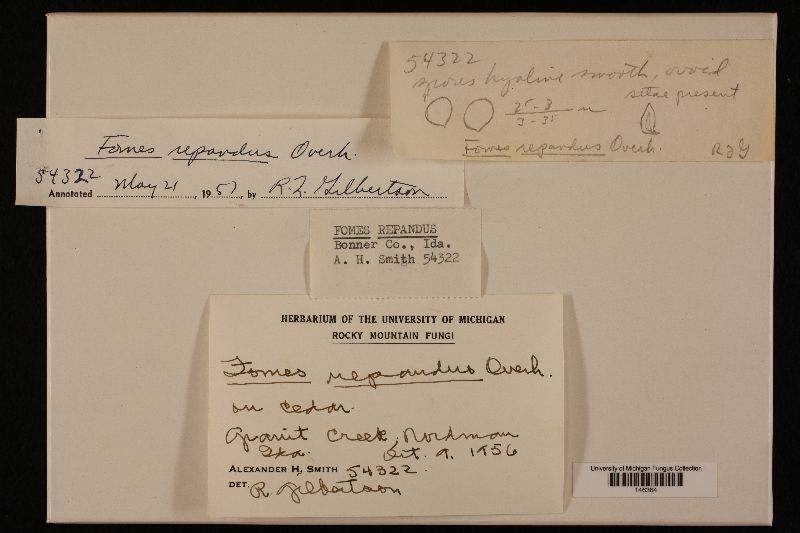 54322
spores hyaline smooth, ovoid
setae present
25-3
3-35
Fomes repandus Overh.
RJG
Fomes repandus Overh.
54322
Annotated May 21, 1957, by R. L. Gilbertson
FOMES REPANDUS
Bonner Co., Ida.
A. H. Smith 54322
HERBARIUM OF THE UNIVERSITY OF MICHIGAN
ROCKY MOUNTAIN FUNGI
Fomes repandus Overh.
on cedar.
Granit Creek, Nordman
Ida. Oct. 9, 1956
ALEXANDER H. SMITH 54322.
DET. R Gilbertson
University of Michigan Fungus Collection
146364